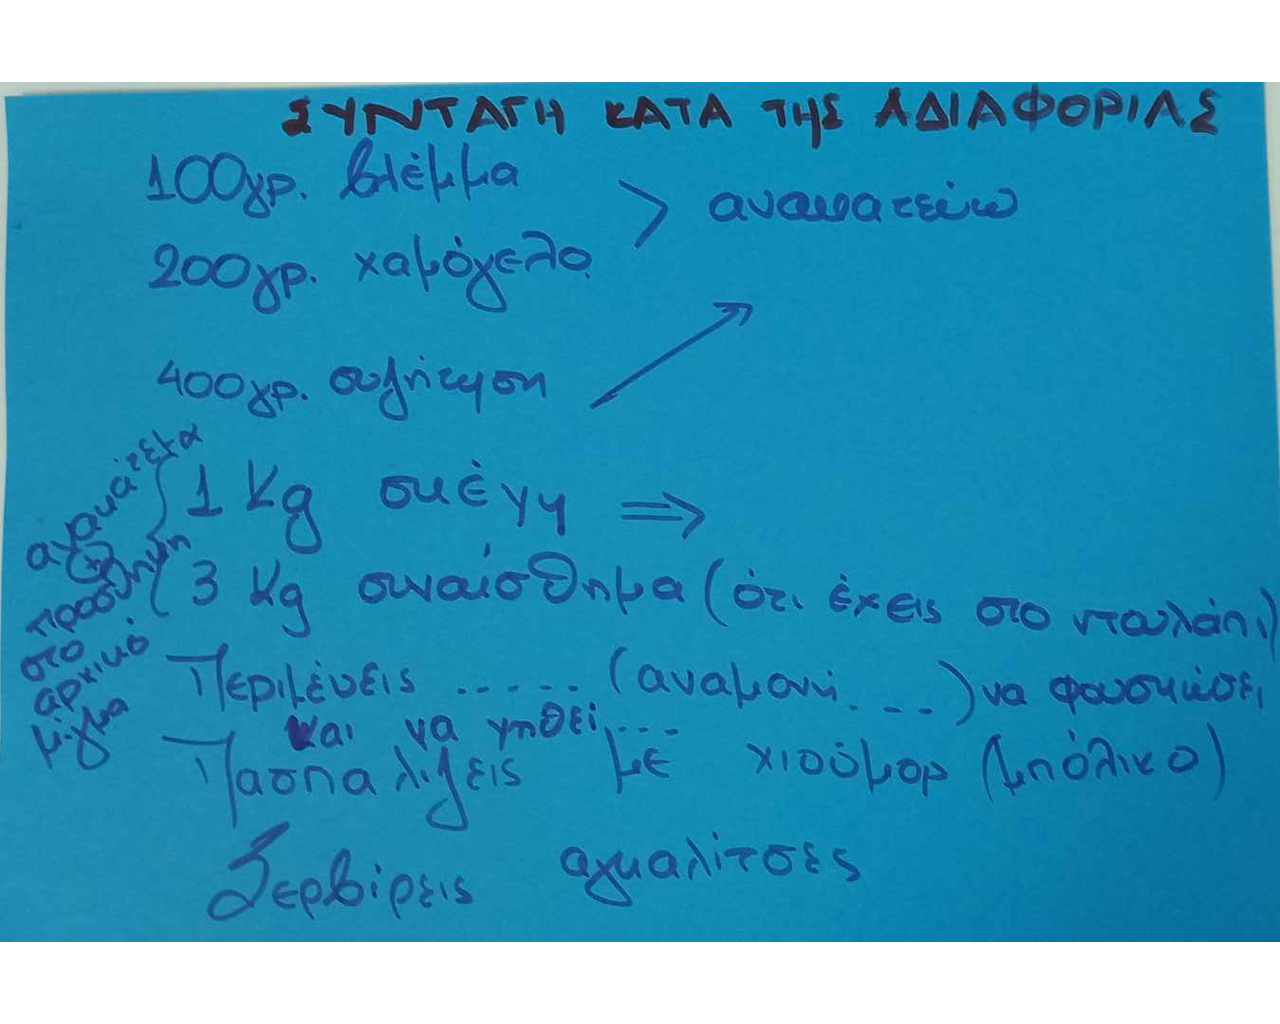 ΣΥΝΤΑΓΗ ΚΑΤΑ ΤΗΣ ΑΔΙΑΦΟΡΙΑΣ
100γρ. βλέμμα
200γρ. χαμόγελο
> ανακατεύω
400γρ. συζήτηση
1 Kg σκέψη ⇒
3 Kg συναίσθημα (ότι έχεις στο ντουλάπι)
ανακάτεμα
+
προσθήκη
στο
αρχικό
μίγμα
Περιμένεις ..... (αναμονή ...) να φουσκώσει
και να ψηθεί....
Πασπαλίζεις με χιούμορ (μπόλικο)
Σερβίρεις αγκαλίτσες